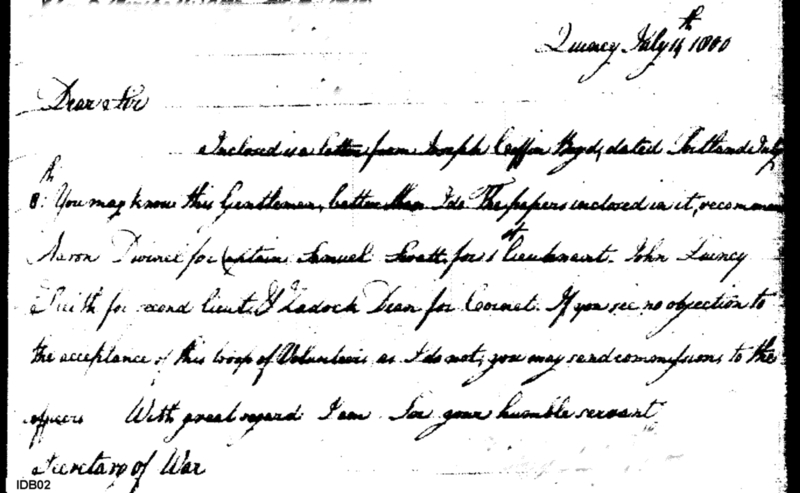 Quincy July 14th 1800
Dear Sir
Inclosed is a letter from Joseph Coffin Boyd, dated Portland July
8th. You may know this Gentleman, better than I do. The papers inclosed in it, recommend
Aaron for Captain Samuel for 1st Lieutenant. John Quincy
for second lieut. & Zadock Dean for Cornet. If you see no objection to
the acceptance of this troop of Volunteers as I do not, you may send commissions to the
officers With great regard I am Sir your humble servant
Secretary of War
IDB02